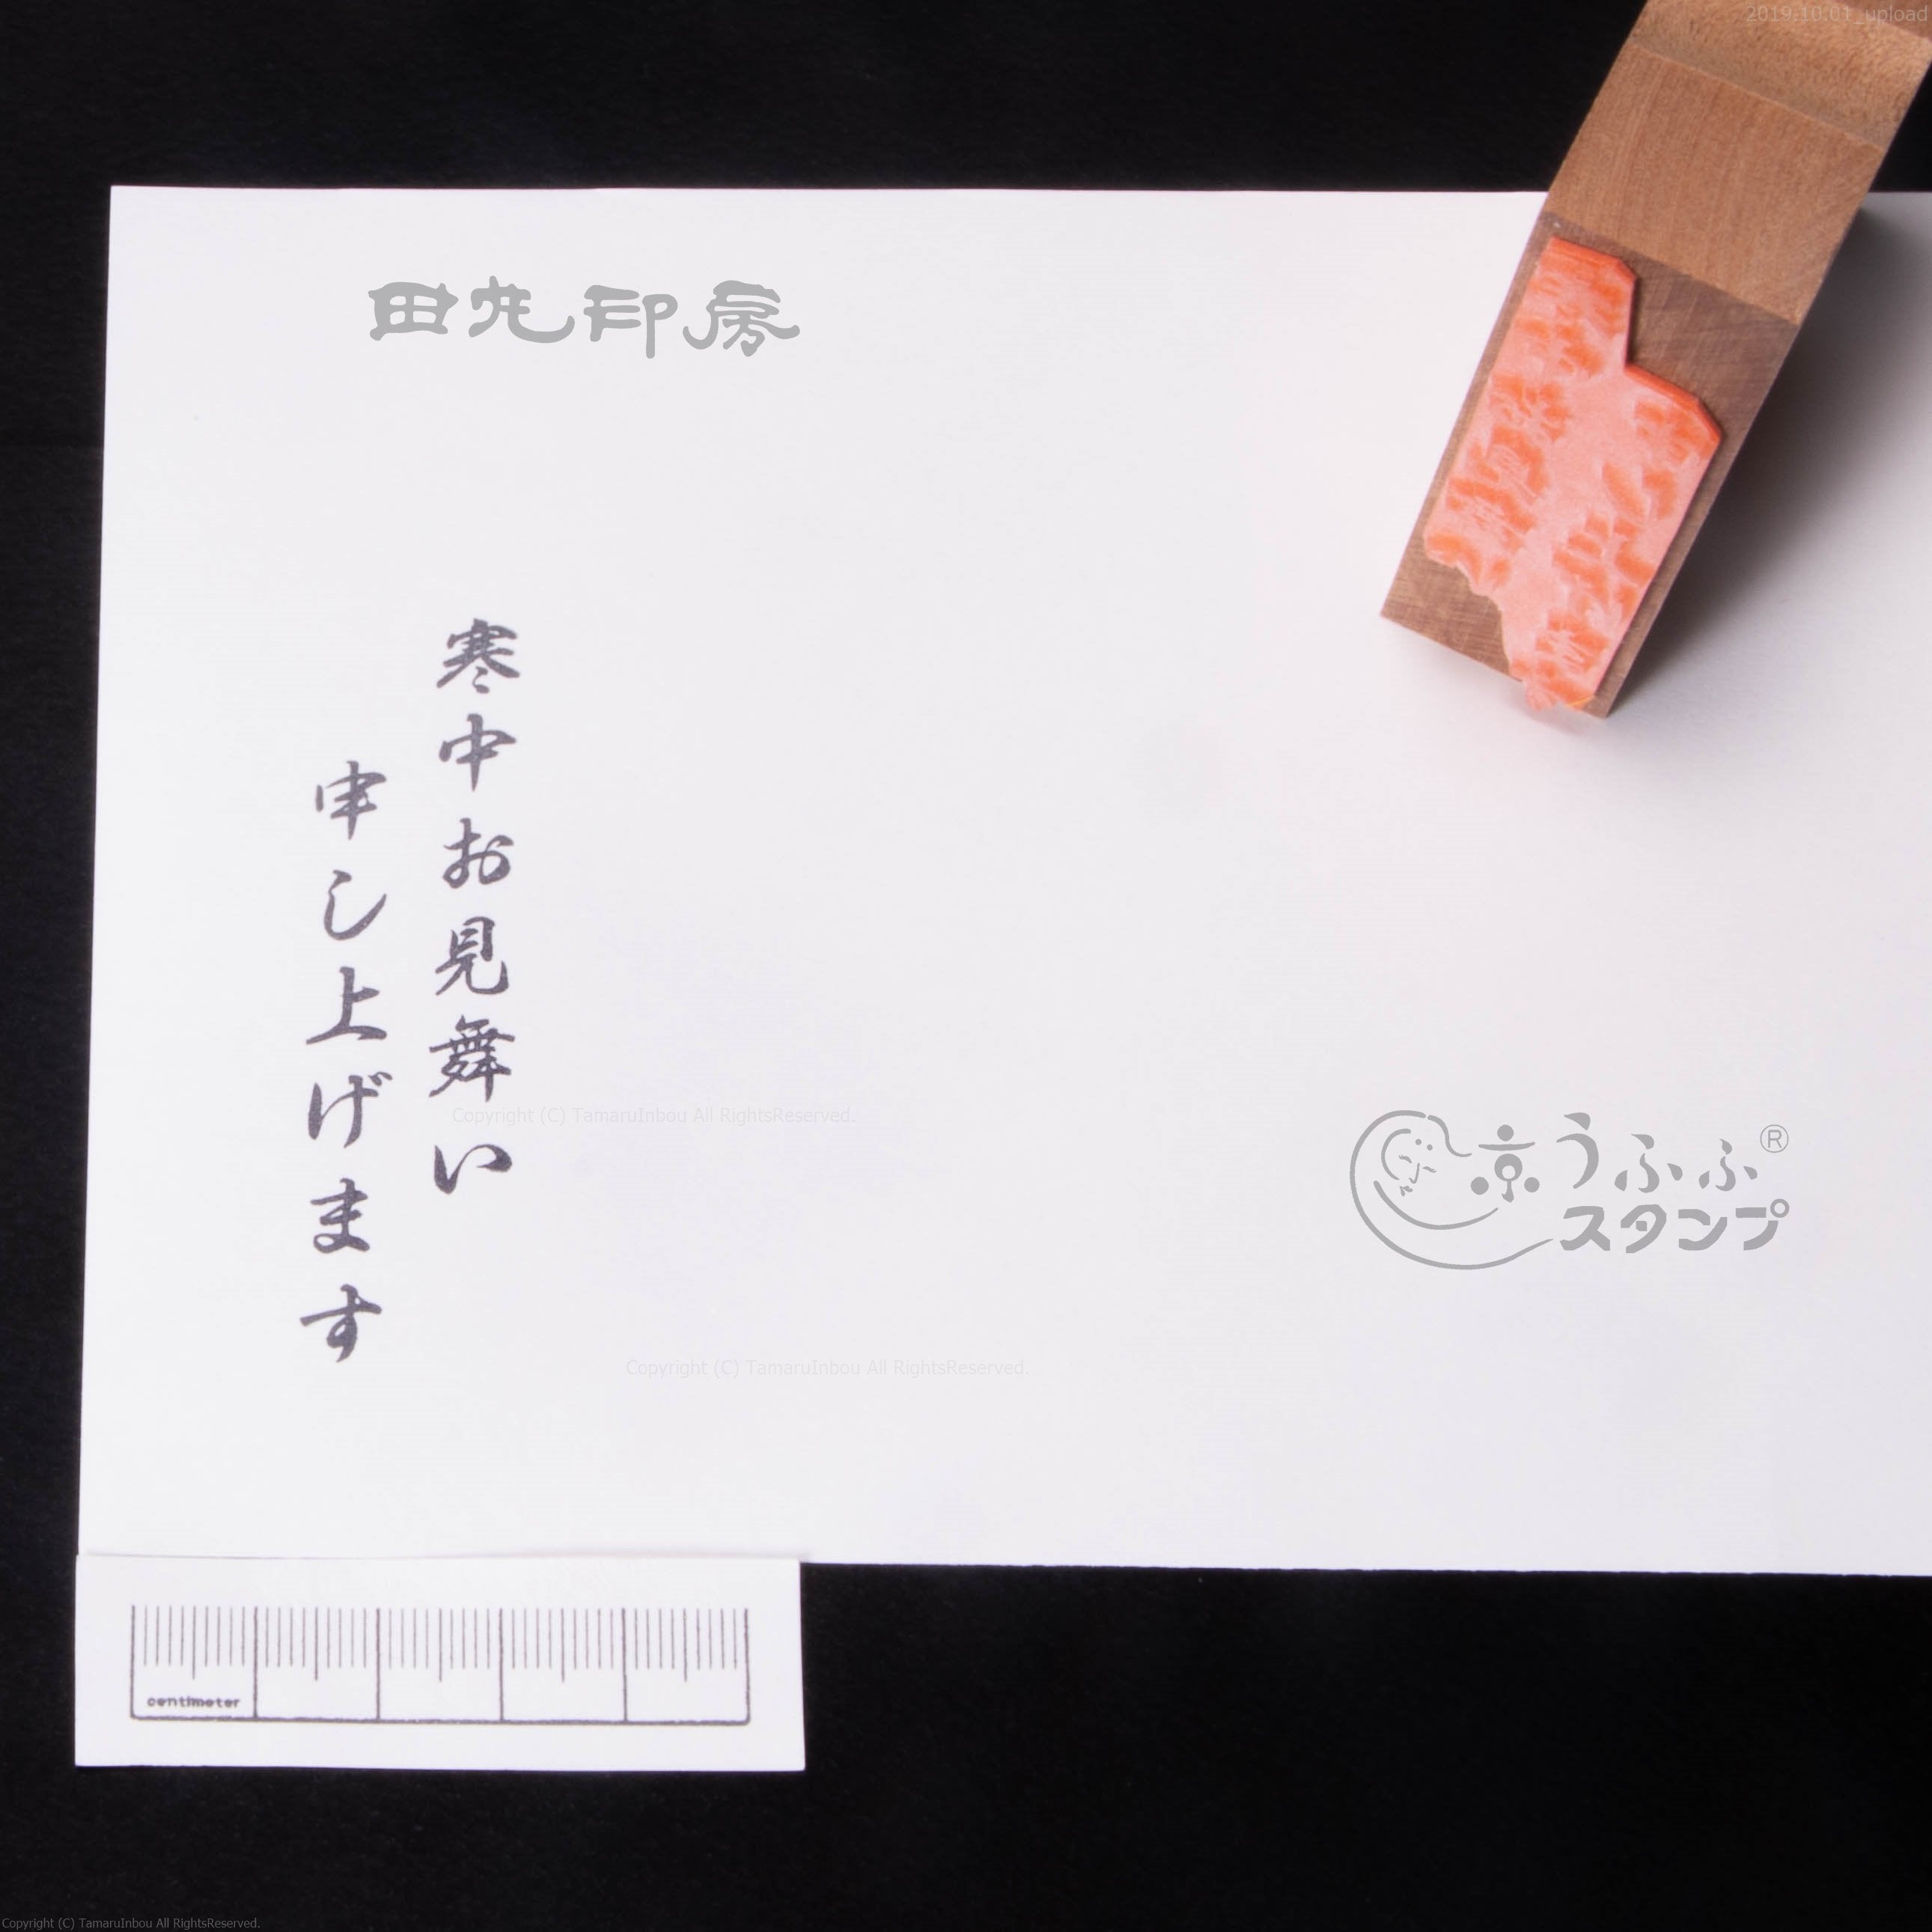 2019.10.01_upload
田丸印房
寒中お見舞い
申し上げます
Copyright (C) TamaruInbou All RightsReserved.
京うふふ®
スタンプ
Copyright (C) TamaruInbou All RightsReserved.
centimeter
Copyright (C) TamaruInbou All RightsReserved.